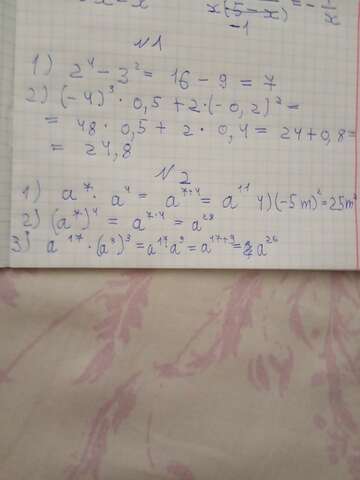 x(5-x) = - 1/x
-1
N1
1) 2⁴ - 3² = 16 - 9 = 7
2) (-4)³ · 0,5 + 2 · (-0,2)² =
= 48 · 0,5 + 2 · 0,4 = 24 + 0,8 =
= 24,8
N2
1) a⁷ · a⁴ = a⁷⁺⁴ = a¹¹ 4) (-5m)² = 25m²
2) (a⁷)⁴ = a⁷·⁴ = a²⁸
3) a¹⁷ · (a³)³ = a¹⁷ · a⁹ = a¹⁷⁺⁹ = a²⁶